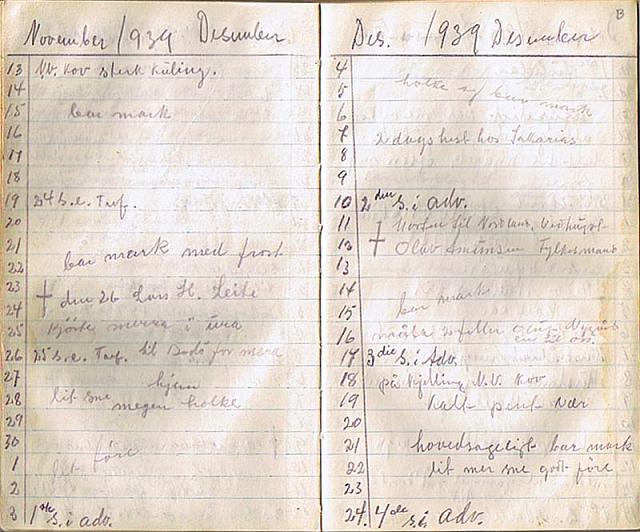 November 1939 Desember
13 N.V. Kov sterk kuling.
14
15 bar mark
16
17
18
19 24 S.e. Tref.
20
21
bar mark med frost
22
23
† den 26 Lars H. Leite
24
25 Kjörte merra i ura
26 25 S.e. Tref. til Bodö for mera
27 hjem
28 lit sne megen holke
29
30
1 före
2
3 1ste S. i adv.
B
Des. 1939 Desember
4
holke og bar mark
5
6
7 2 dags hest hos Sakarias
8
9
10 2den S. i adv.
11 til
12 † Olav Fylkesmand
13
14
bar mark
15
16 en til os.
17 3die S. i Adv.
18 på Kjelling N.V. Kov
19 Kalt pent vær
20
21 hovedsageligt bar mark
22 lit mer sne godt före
23
24. 4de S. i adv.